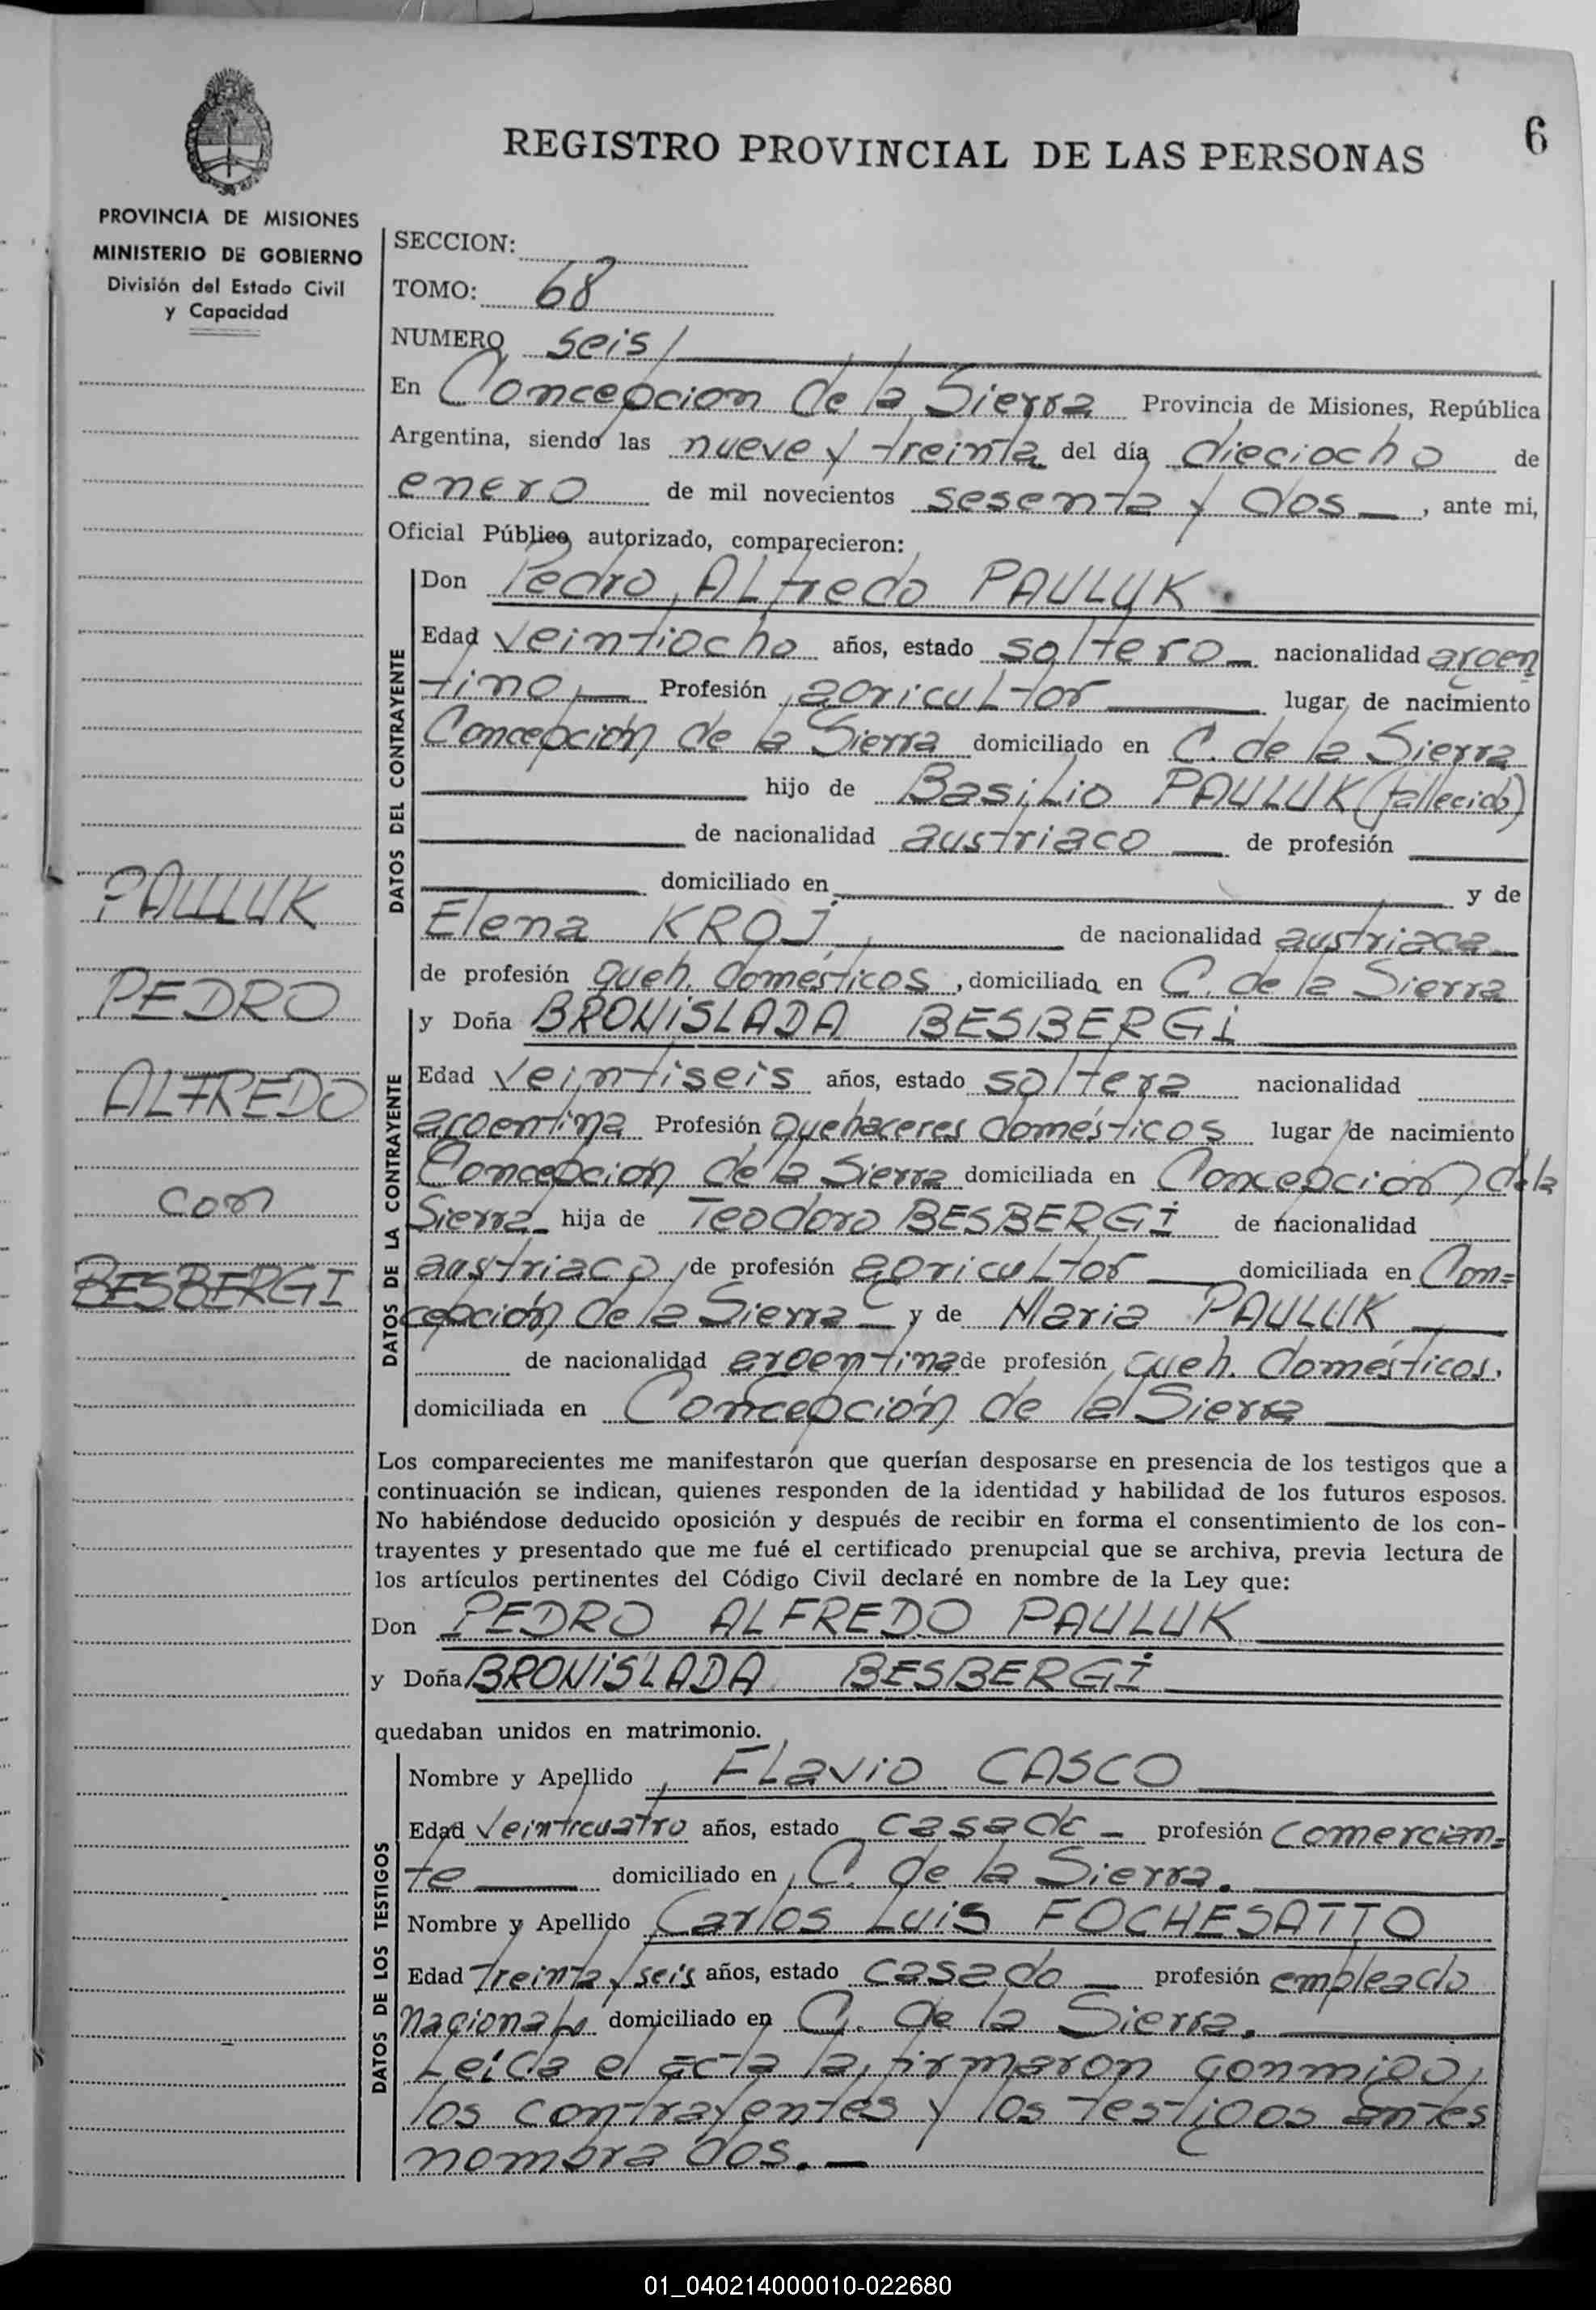 REGISTRO PROVINCIAL DE LAS PERSONAS
6
PROVINCIA DE MISIONES
MINISTERIO DE GOBIERNO
División del Estado Civil
y Capacidad
SECCION:
TOMO: 68
NUMERO seis
En Concepcion de la Sierra Provincia de Misiones, República
Argentina, siendo las nueve y treinta del día dieciocho de
enero de mil novecientos sesenta y dos , ante mi,
Oficial Público autorizado, comparecieron:
DATOS DEL CONTRAYENTE
Don Pedro Alfredo PAULUK
Edad veintiocho años, estado soltero nacionalidad argen
tino Profesión agricultor lugar de nacimiento
Concepción de la Sierra domiciliado en C. de la Sierra
hijo de Basilio PAULUK (fallecido)
de nacionalidad austriaco de profesión
domiciliado en y de
Elena KROJ de nacionalidad austriaca
de profesión queh. domésticos, domiciliada en C. de la Sierra
DATOS DE LA CONTRAYENTE
y Doña BRONISLADA BESBERGI
Edad veintiseis años, estado soltera nacionalidad
argentina Profesión Quehaceres domésticos lugar de nacimiento
Concepción de la Sierra domiciliada en Concepción de la
Sierra hija de Teodoro BESBERGI de nacionalidad
austriaco de profesión agricultor domiciliada en Con=
cepción de la Sierra y de Maria PAULUK
de nacionalidad argentina de profesión queh. domésticos.
domiciliada en Concepción de la Sierra
Los comparecientes me manifestarón que querían desposarse en presencia de los testigos que a
continuación se indican, quienes responden de la identidad y habilidad de los futuros esposos.
No habiéndose deducido oposición y después de recibir en forma el consentimiento de los con-
trayentes y presentado que me fué el certificado prenupcial que se archiva, previa lectura de
los artículos pertinentes del Código Civil declaré en nombre de la Ley que:
Don PEDRO ALFREDO PAULUK
y Doña BRONISLADA BESBERGI
quedaban unidos en matrimonio.
DATOS DE LOS TESTIGOS
Nombre y Apellido Flavio CASCO
Edad veinticuatro años, estado casado profesión comercian=
te domiciliado en C. de la Sierra.
Nombre y Apellido Carlos Luis FOCHESATTO
Edad treinta y seis años, estado casado profesión empleado
nacional domiciliado en C. de la Sierra.
Leida el acta la firmaron conmigo,
los contrayentes y los testigos antes
nombrados.
PAULUK
PEDRO
ALFREDO
con
BESBERGI
01_040214000010-022680